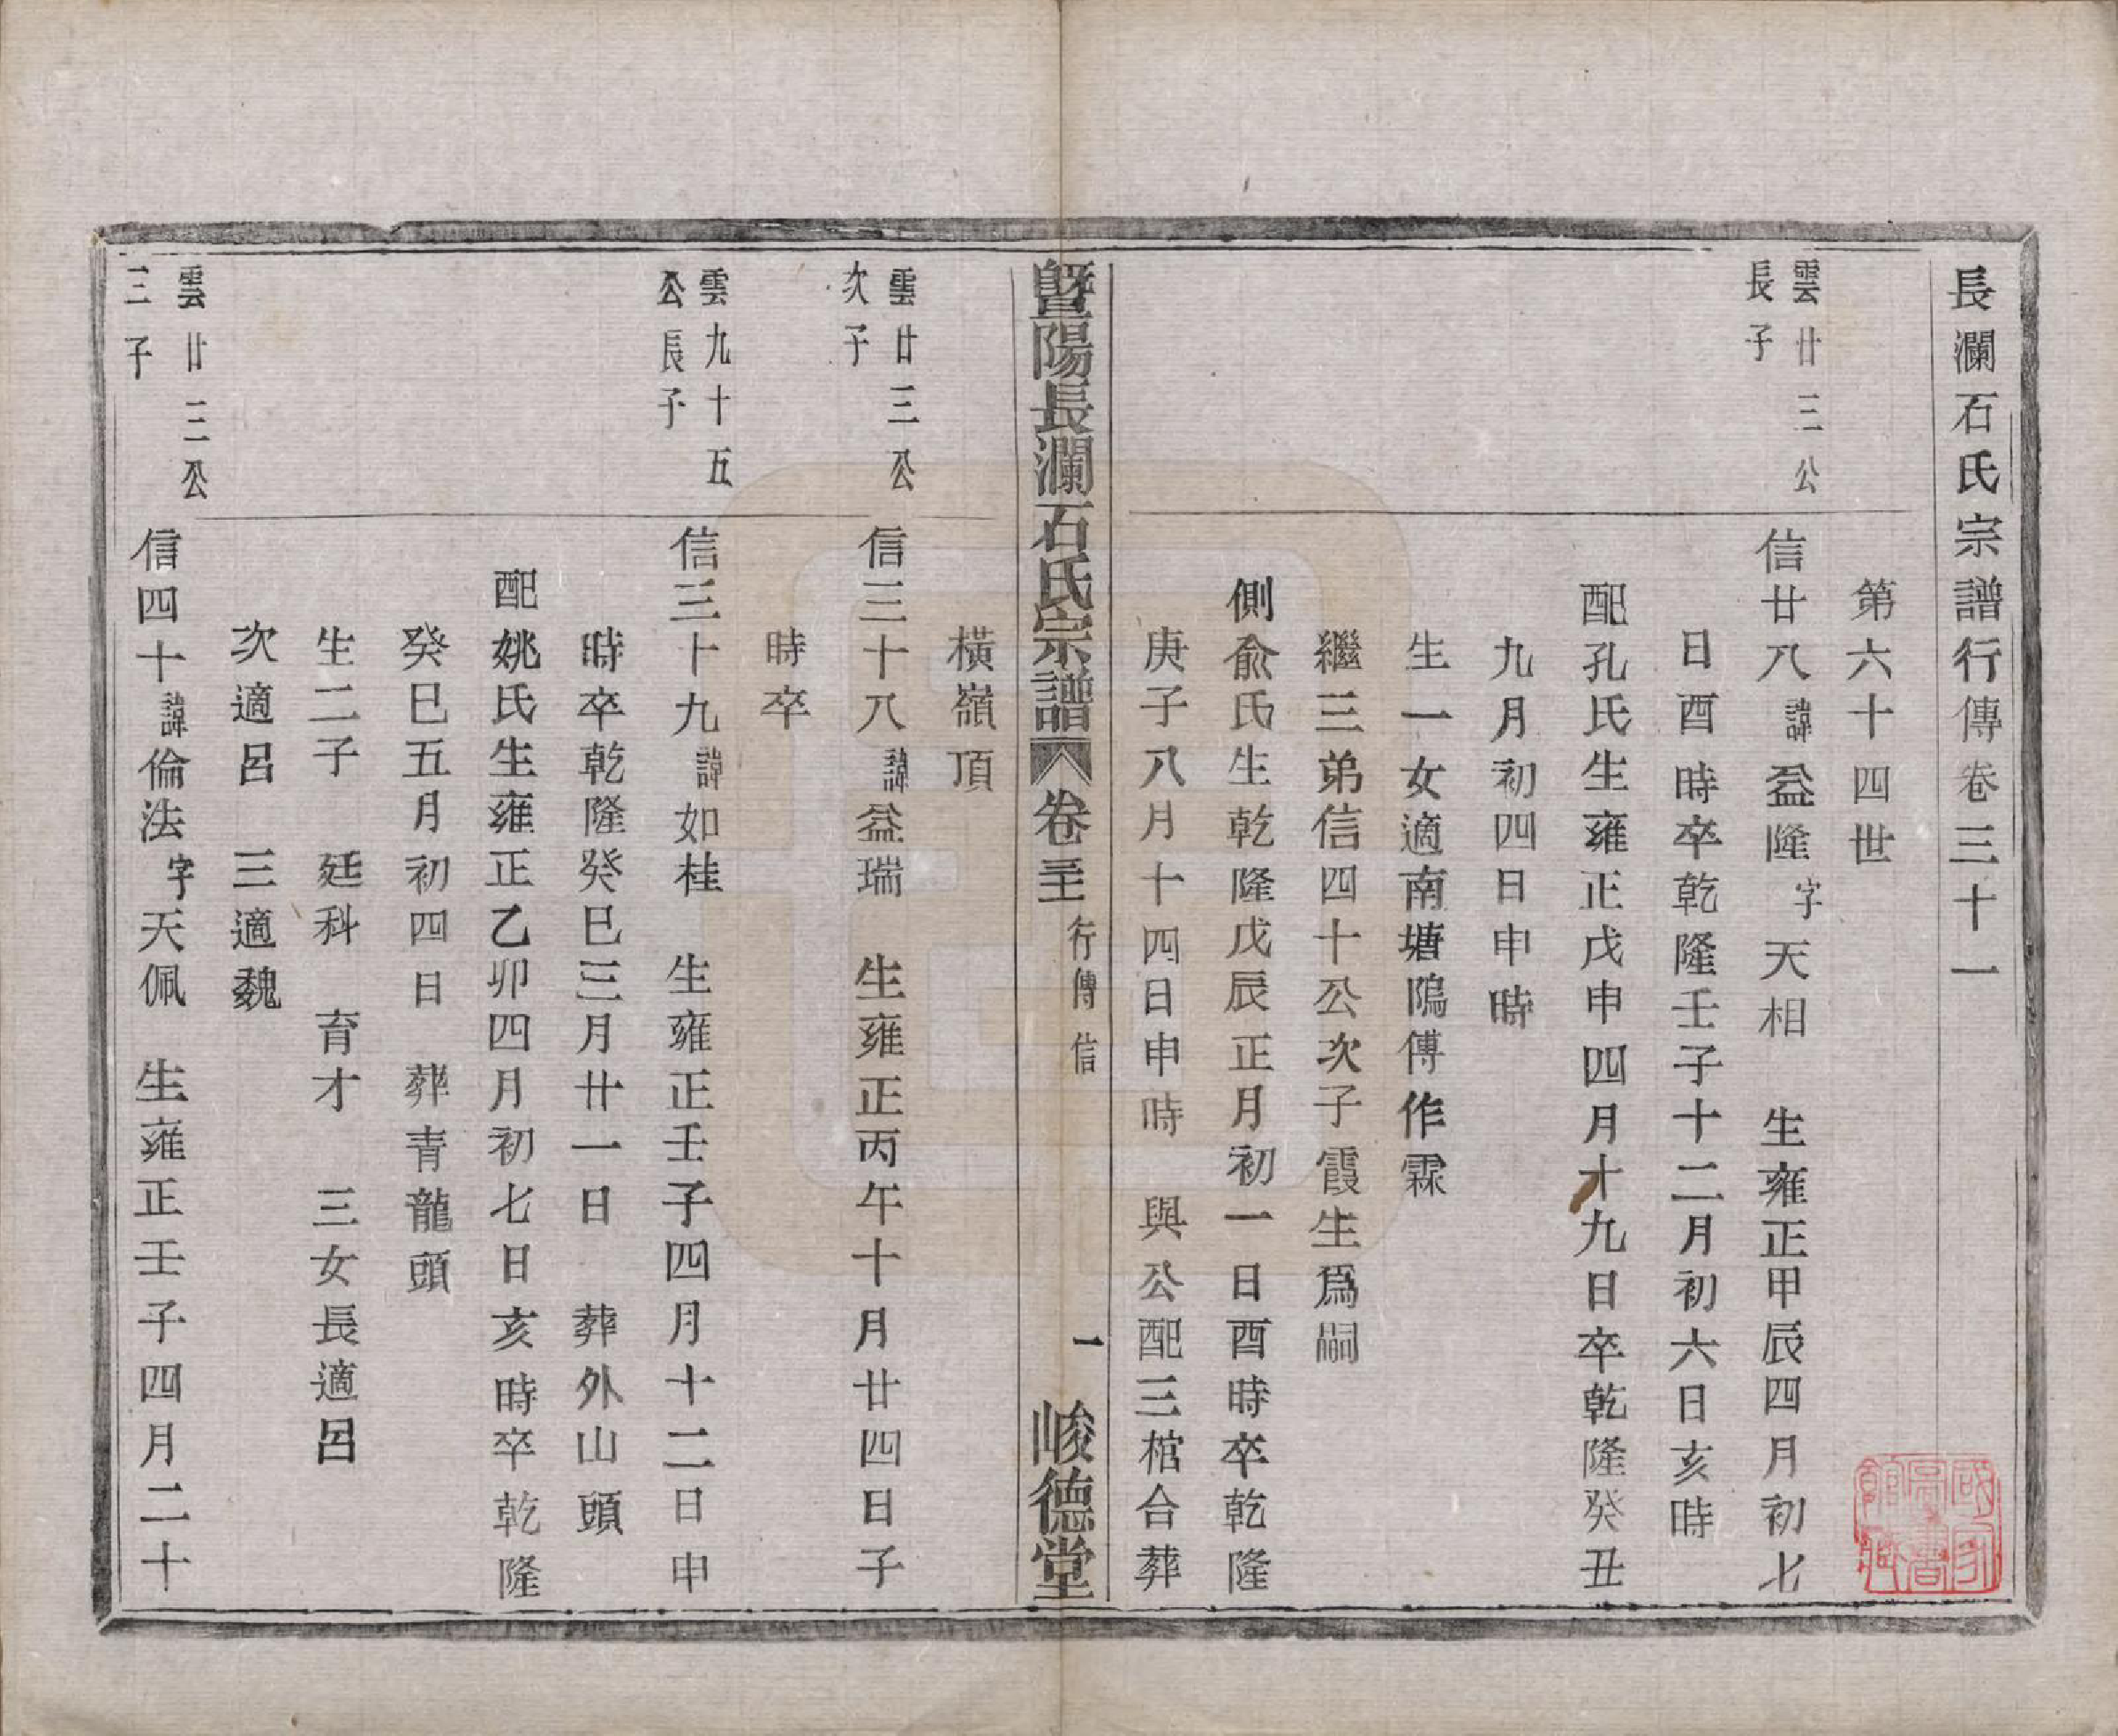 長瀾石氏宗譜行傳卷三十一
第六十四世
雲廿三公
長子
信廿八諱益隆字天相　生雍正甲辰四月初七
日酉時卒乾隆壬子十二月初六日亥時
配孔氏生雍正戊申四月十九日卒乾隆癸丑
九月初四日申時
生一女適南塘隖傅作霖
繼三弟信四十公次子霞生爲嗣
側俞氏生乾隆戊辰正月初一日酉時卒乾隆
庚子八月十四日申時　與公配三棺合葬
暨陽長瀾石氏宗譜　卷三十一　行傳　信　一　峻德堂
橫嶺頂
雲廿三公
次子
信三十八諱益瑞　生雍正丙午十月廿四日子
時卒
雲九十五
公長子
信三十九諱如桂　生雍正壬子四月十二日申
時卒乾隆癸巳三月廿一日　葬外山頭
配姚氏生雍正乙卯四月初七日亥時卒乾隆
癸巳五月初四日　葬青龍頭
生二子　廷科　育才　三女長適呂
次適呂　三適魏
雲廿三公
三子
信四十諱倫法字天佩　生雍正壬子四月二十
國家圖書館藏